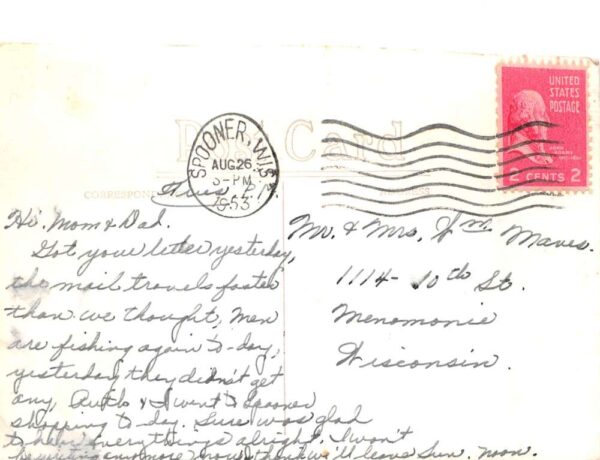 Post Card
UNITED
STATES
POSTAGE
2 CENTS 2
SPOONER, WIS.
AUG 26
3-PM
1953
CORRESPONDENCE
Hi, Mom & Dad.
Got your letter yesterday,
the mail travels faster
than we thought, Men
are fishing again to-day,
yesterday they didn't get
any, Ruth & I went to Spooner
shopping to-day. Sure was glad
to hear everythings alright, I won't
be writing anymore now, think we'll leave Sun. noon.
Mr. & Mrs. Wm. Maves.
1114- 10th St.
Menomonie
Wisconsin.